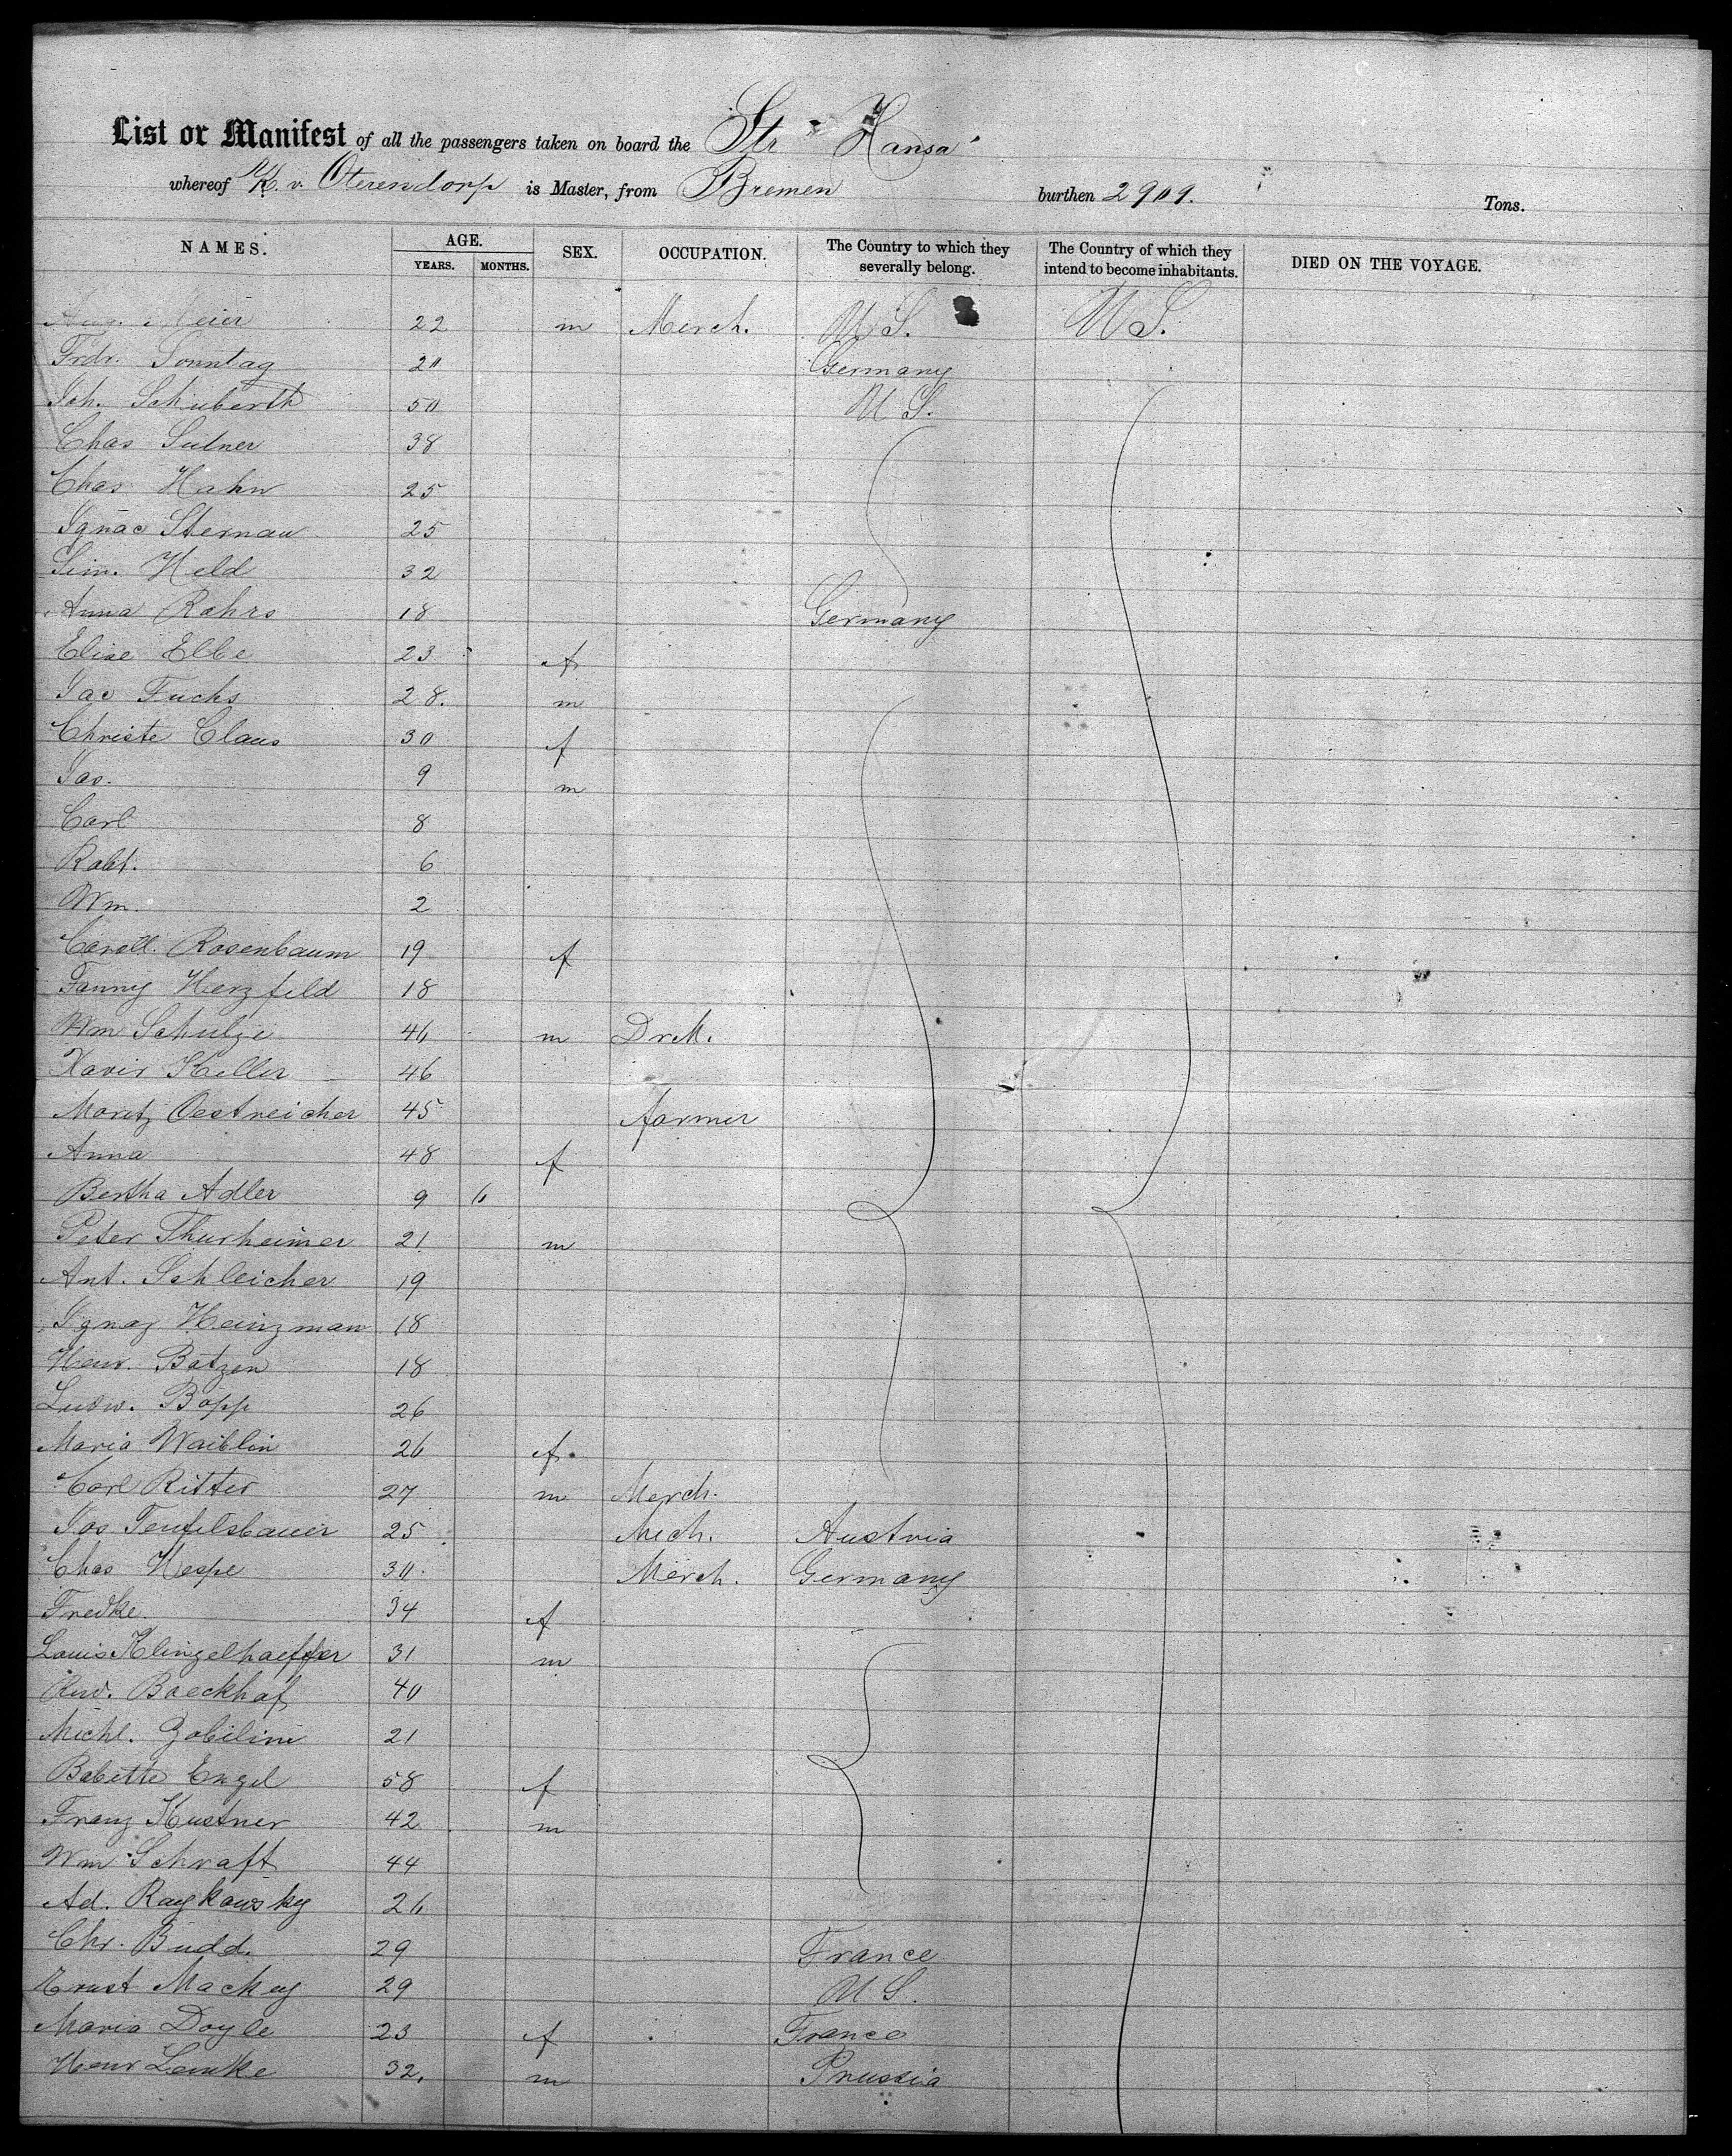 List or Manifest of all the passengers taken on board the Str Hansa
whereof K. v. Oterendorp is Master, from Bremen burthen 2909. Tons.
NAMES. AGE. YEARS. MONTHS. SEX. OCCUPATION. The Country to which they severally belong. The Country of which they intend to become inhabitants. DIED ON THE VOYAGE.
Aug. Meier 22 m Merch. U S. U S.
Fredr. Sonntag 20 Germany
Joh. Schuberth 50 U S.
Chas Sulner 38
Chas Hahn 25
Ignac Sternau 25
Sim. Held 32
Anna Rahrs 18 Germany
Elise Elbe 23 f
Jac Fuchs 28. m
Christe Claus 30 f
Jas. 9 m
Carl 8
Robt. 6
Wm. 2
Caroll. Rosenbaum 19 f
Fanny Herzfeld 18
Wm Schulze 46 m
Xavir Keller 46
Moritz Oestreicher 45 farmer
Anna 48 f
Bertha Adler 9 6
Peter Thurheimer 21 m
Ant. Schleicher 19
Ignaz Heinzman 18
Henr. Batzen 18
Ludw. Bopp 26
Maria Waiblin 26 f
Carl Ritter 27 m Merch.
Jos Teufelsbauer 25 Mech. Austria
Chas Hespe 30 Merch. Germany
Fredke. 34 f
Louis Klingelhaeffer 31 m
Rud. Boeckhof 40
Michl. Zobilini 21
Babette Engel 58 f
Franz Kustner 42 m
Wm Schraft 44
Ad. Raykowsky 26
Chr. Budd. 29 France
Ernst Mackey 29 U S.
Maria Doyle 23 f France
Henr Lemke 32. m Prussia